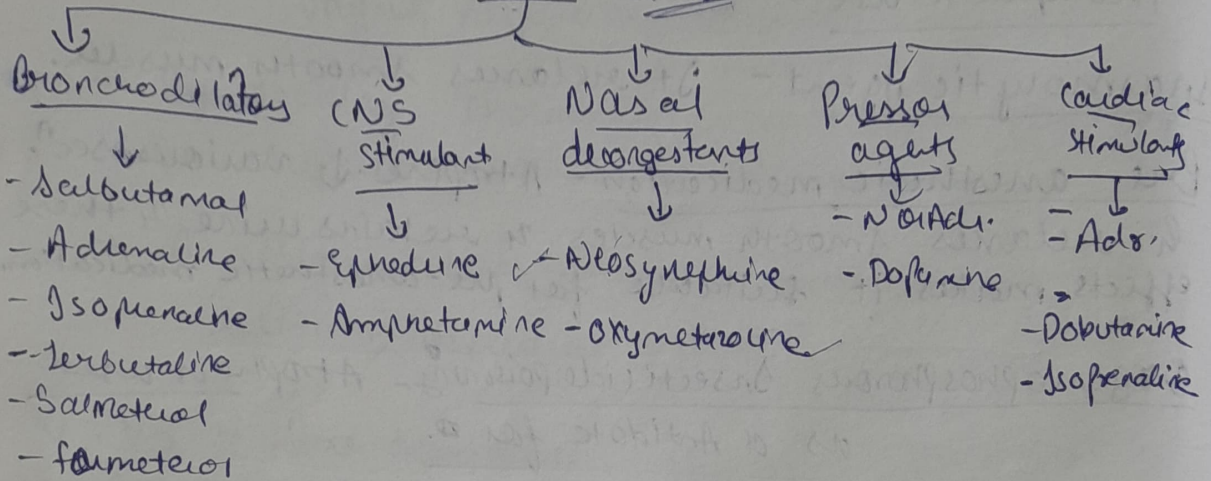 Bronchodilators
- Salbutamol
- Adrenaline
- Isoprenaline
- Terbutaline
- Salmeterol
- formeterol
CNS
stimulant
- Ephedrine
- Amphetamine
Nasal
decongestants
- Neosynephrine
- Oxymetazoline
Pressor
agents
- NorAdr.
- Dopamine
Cardiac
stimulants
- Adr.
- Dobutamine
- Isoprenaline